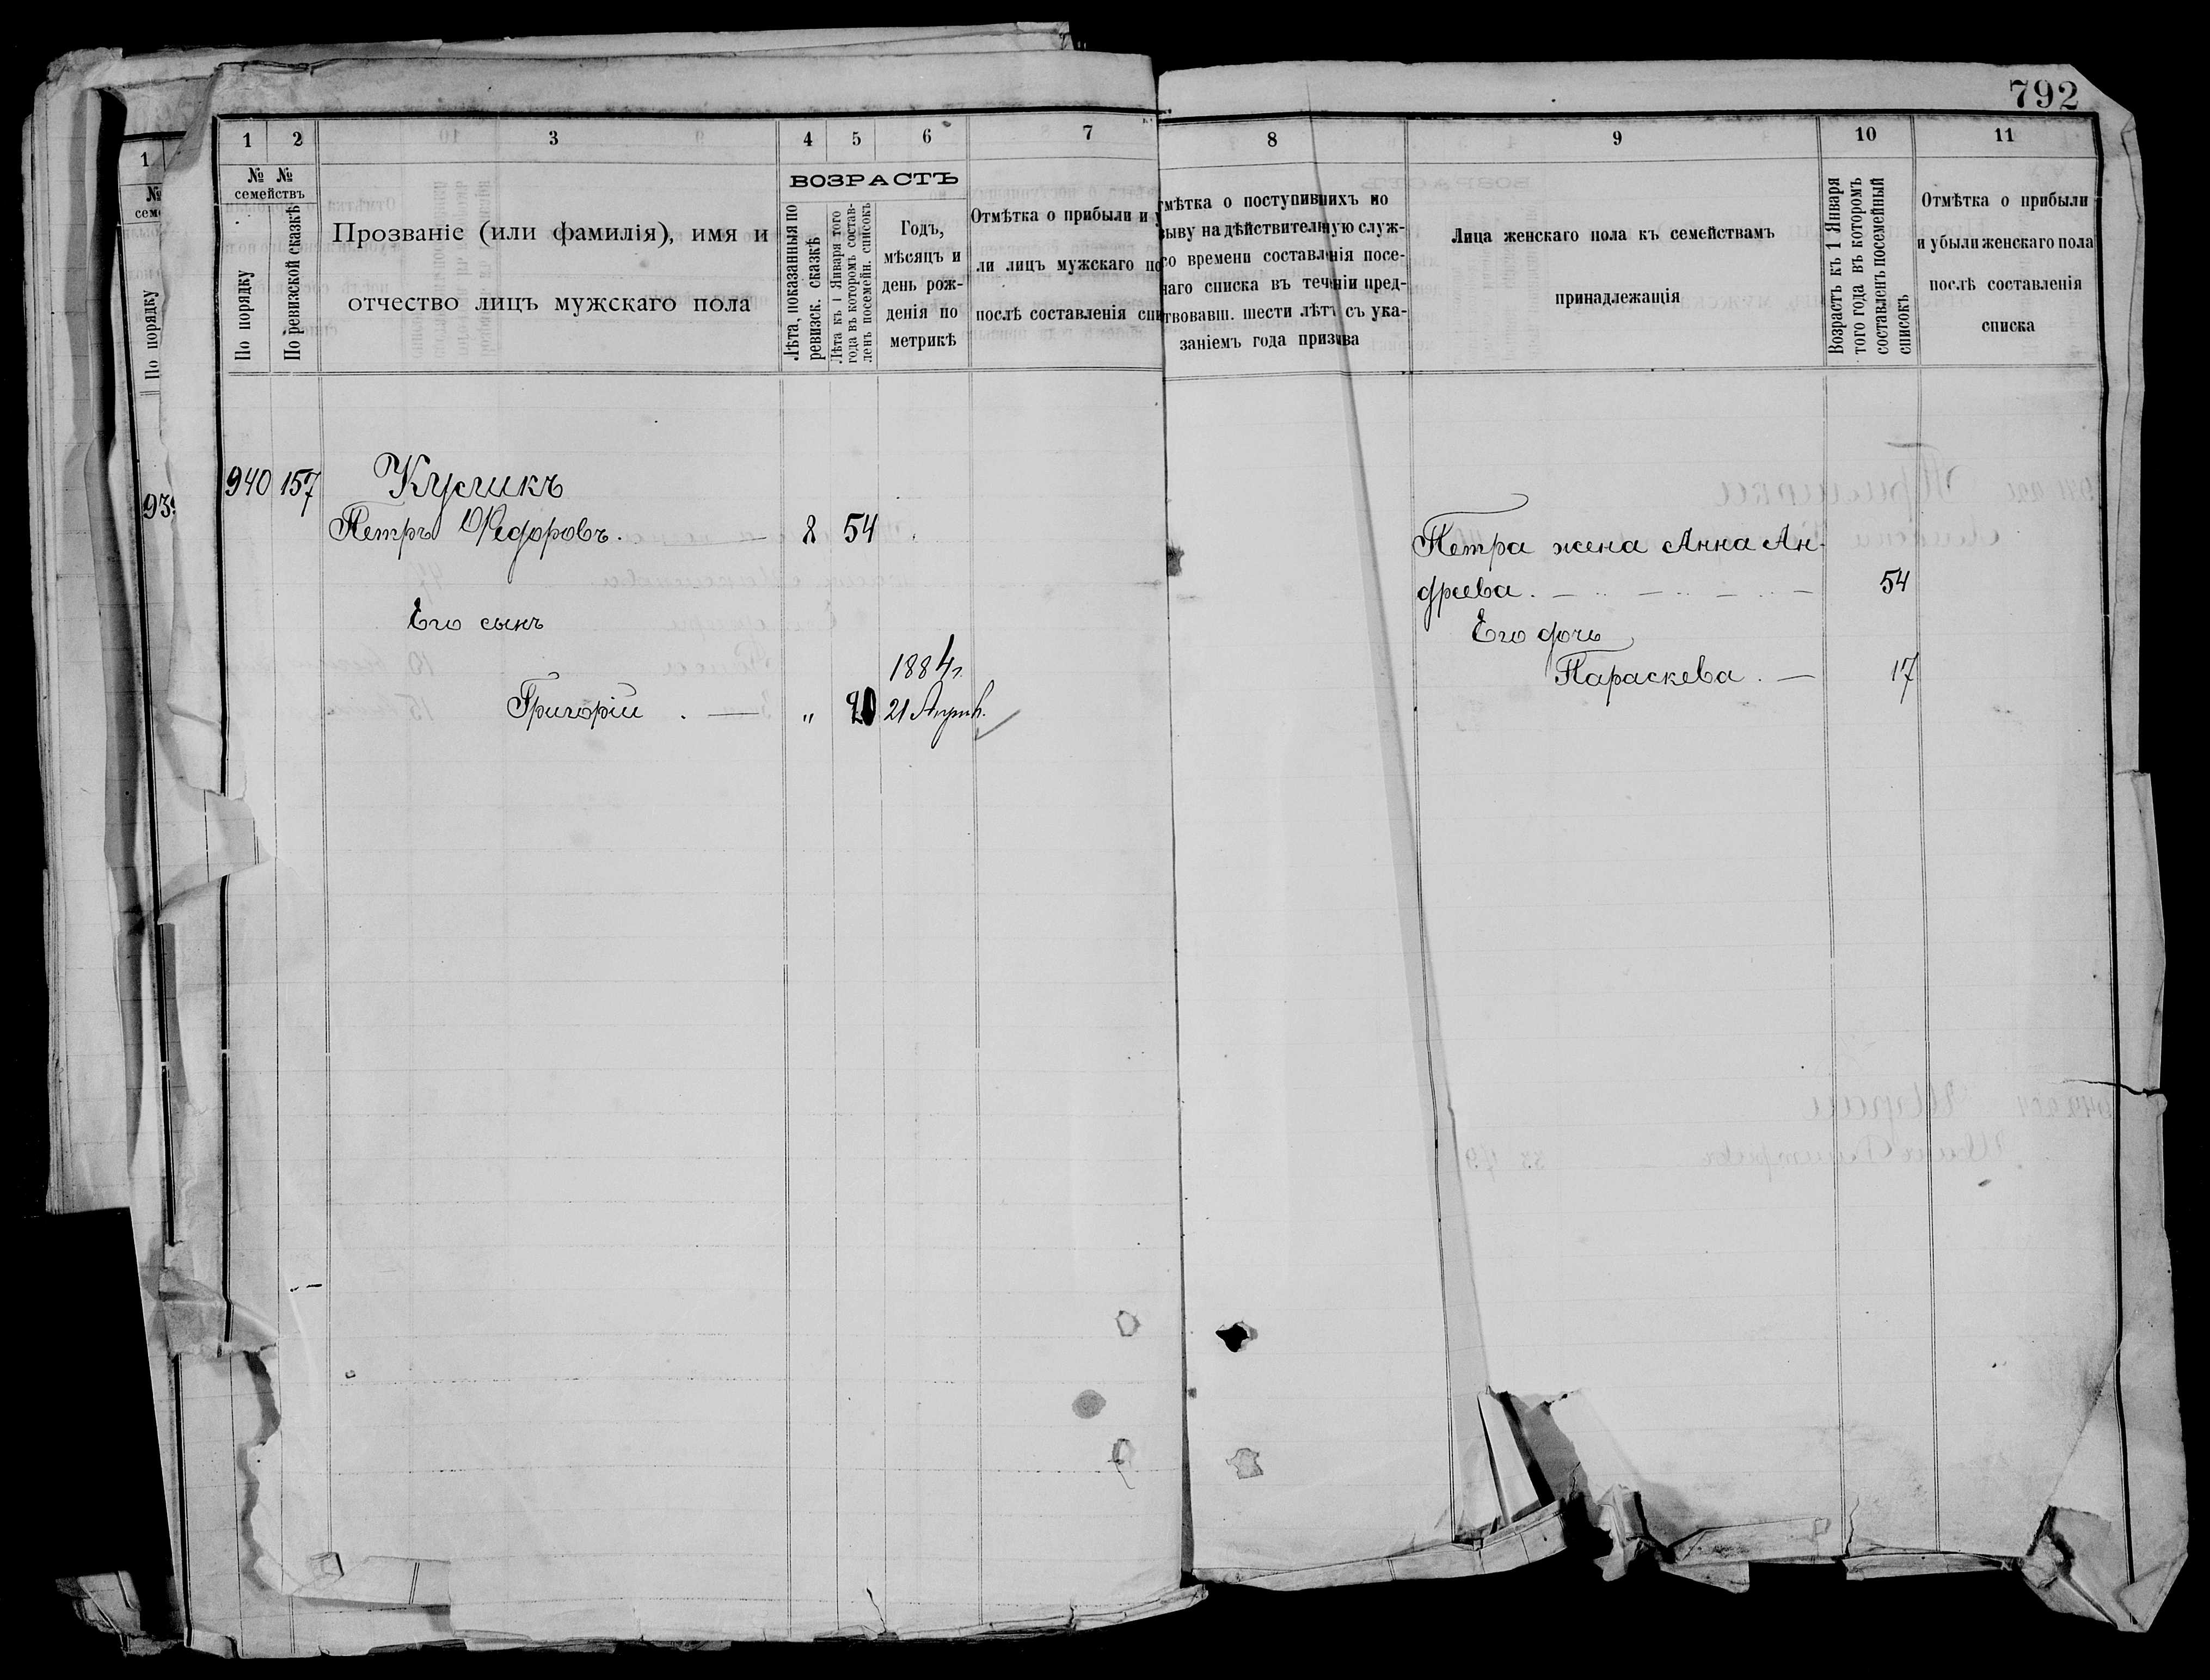 792
1 2 3 4 5 6 7 8 9 10 11
№ № семействъ
По порядку
По ревизской сказкѣ
Прозваніе (или фамилія), имя и
отчество лицъ мужскаго пола
ВОЗРАСТЪ
Лѣта, показанныя по
ревизск. сказкѣ
Лѣта къ 1 Января того
года въ которомъ состав-
ленъ посемейн. списокъ
Годъ,
мѣсяцъ и
день рож-
денія по
метрикѣ
Отмѣтка о прибыли и у
ли лицъ мужскаго по
послѣ составленія спи
мѣтка о поступившихъ по
зыву на дѣйствительную служ-
со времени составленія посе-
наго списка въ теченіи пред-
твовавш. шести лѣтъ съ ука-
заніемъ года призыва
Лица женскаго пола къ семействамъ
принадлежащія
Возрастъ къ 1 Января
того года въ которомъ
составленъ посемейный
списокъ
Отмѣтка о прибыли
и убыли женскаго пола
послѣ составленія
списка
1
№
сем
По порядку
93
940 157
Петръ Федоровъ. 8 54
Его сынъ
1884г.
Григорій . — „ 20 21 Апрѣл.
Петра жена Анна Ан-
дреева. 54
Его дочь
Параскева . — 17